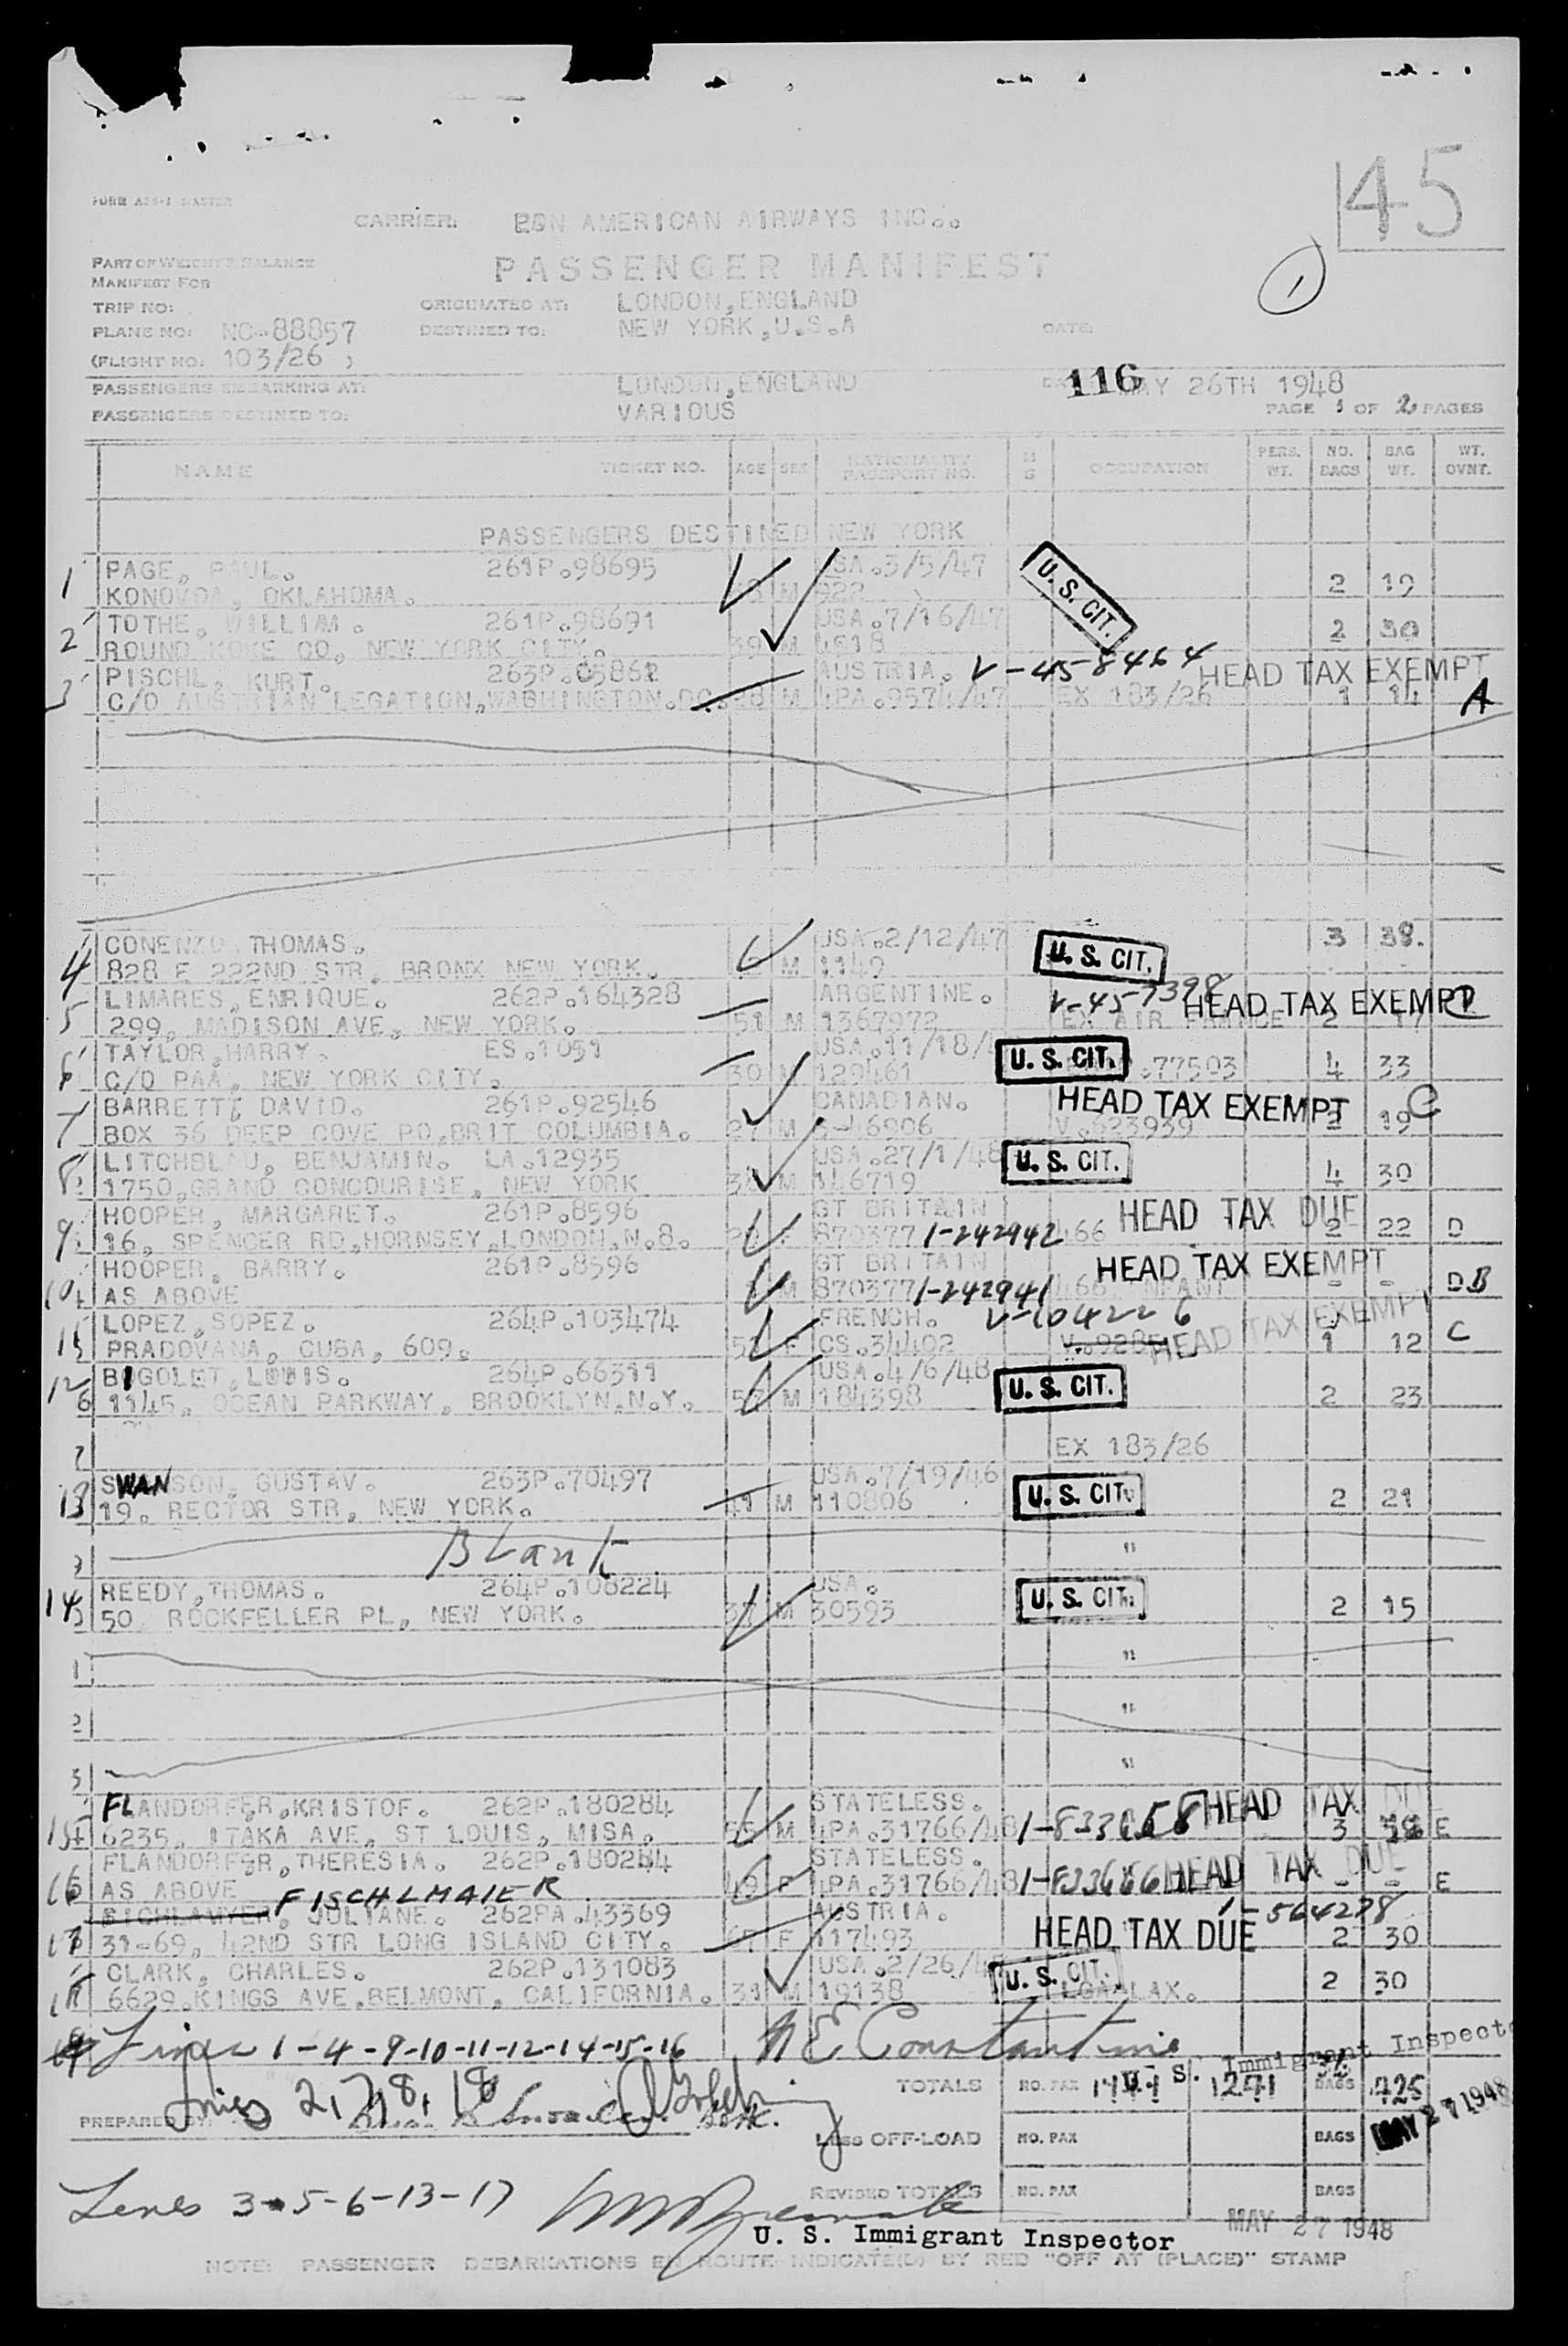 45
FORM
CARRIER: PAN AMERICAN AIRWAYS INC..
PART OF WEIGHT & BALANCE
PASSENGER MANIFEST
1
MANIFEST FOR
TRIP NO: ORIGINATED AT: LONDON,ENGLAND
PLANE NO: NC-88857 DESTINED TO: NEW YORK,U.S.A DATE:
(FLIGHT NO: 103/26 )
PASSENGERS EMBARKING AT: LONDON,ENGLAND 116 MAY 26TH 1948
PASSENGERS DESTINED TO: VARIOUS PAGE 1 OF 2 PAGES
NAME TICKET NO. AGE SEX NATIONALITY PASSPORT NO. OCCUPATION PERS. WT. NO. BAGS BAG WT. WT. OVNT.
PASSENGERS DESTINED NEW YORK
1 PAGE, PAUL. 261P.98695 USA.3/5/47 U. S. CIT.
OKLAHOMA. M 922 2 19
2 TOTHE, WILLIAM. 261P.98691 USA.7/16/47
ROUND CO, NEW YORK CITY. 39 M 4618 2 30
3 PISCHL, KURT. 263P.05862 AUSTRIA. V-45-8464 HEAD TAX EXEMPT
C/O AUSTRIAN LEGATION,WASHINGTON.DC. 28 M 4PA.9574/47 EX 183/26 1 14 A
4 CONENZO, THOMAS. USA.2/12/47 U. S. CIT. 3 38.
828 E 222ND STR, BRONX NEW YORK. M 1149
5 LIMARES, ENRIQUE. 262P.164328 ARGENTINE. V-45-7398 HEAD TAX EXEMPT
299, MADISON AVE, NEW YORK. 51 M 1367972 EX AIR FRANCE 2 17
6 TAYLOR,HARRY. ES.1051 USA.11/18/ U. S. CIT.
C/O PAA, NEW YORK CITY. 30 M 129461 .77503 4 33
7 BARRETT, DAVID. 261P.92546 CANADIAN. HEAD TAX EXEMPT C
BOX 36 DEEP COVE PO.BRIT COLUMBIA. 27 M 5-46906 V.623939 2 19
8 LITCHBLAU, BENJAMIN. LA.12935 USA.27/1/48 U. S. CIT.
1750,GRAND CONCOURISE, NEW YORK M 146719 4 30
9 HOOPER, MARGARET. 261P.8596 GT BRITAIN HEAD TAX DUE
16, SPENCER RD,HORNSEY,LONDON.N.8. 870377 1-242942 466 2 22 D
10 HOOPER, BARRY. 261P.8596 GT BRITAIN HEAD TAX EXEMPT
AS ABOVE M 870377 1-242941 466 INFANT - - DB
11 LOPEZ,SOPEZ. 264P.103474 FRENCH. V-104226 HEAD TAX EXEMPT
PRADOVANA, CUBA, 609. F CS.34402 1 12 C
12 BIGOLET,LOUIS. 264P.66311 USA.4/6/48 U. S. CIT.
1145, OCEAN PARKWAY, BROOKLYN.N.Y. 57 M 184398 2 23
EX 183/26
13 SWANSON, GUSTAV. 263P.70497 USA.7/19/46 U. S. CIT.
19. RECTOR STR, NEW YORK. 41 M 110806 2 21
Blank "
14 REEDY,THOMAS. 264P.108224 USA. U. S. CIT.
50 ROCKFELLER PL, NEW YORK. 37 M 30593 2 15
1 "
2 "
3 "
15 FLANDORFER,KRISTOF. 262P.180284 STATELESS. HEAD TAX DUE
6235. ITAKA AVE, ST LOUIS, MISA. 55 M 4PA.31766/48 3 E
16 FLANDORFER,THERESIA. 262P.180284 STATELESS. HEAD TAX DUE
AS ABOVE 49 F 4PA.31766/48 - - E
17 FISCHLMAIER, JULIANE. 262PA.43369 AUSTRIA. 1-564278
31-69, 42ND STR LONG ISLAND CITY. 67 F 117493 HEAD TAX DUE 2 30
18 CLARK, CHARLES. 262P.131083 USA.2/26/ U. S. CIT.
6629.KINGS AVE,BELMONT, CALIFORNIA. 31 M 19138 2 30
Lines 1-4-9-10-11-12-14-15-16 N E Constantine
U. S. Immigrant Inspector
Lines 2,7,8,18
TOTALS NO. PAX 1271 BAGS 425
PREPARED BY:
MAY 27 1948
LESS OFF-LOAD NO. PAX BAGS
Lines 3-5-6-13-17
REVISED TOTALS NO. PAX BAGS
U. S. Immigrant Inspector
MAY 27 1948
NOTE: PASSENGER DEBARKATIONS EN ROUTE INDICATE(D) BY RED "OFF AT (PLACE)" STAMP